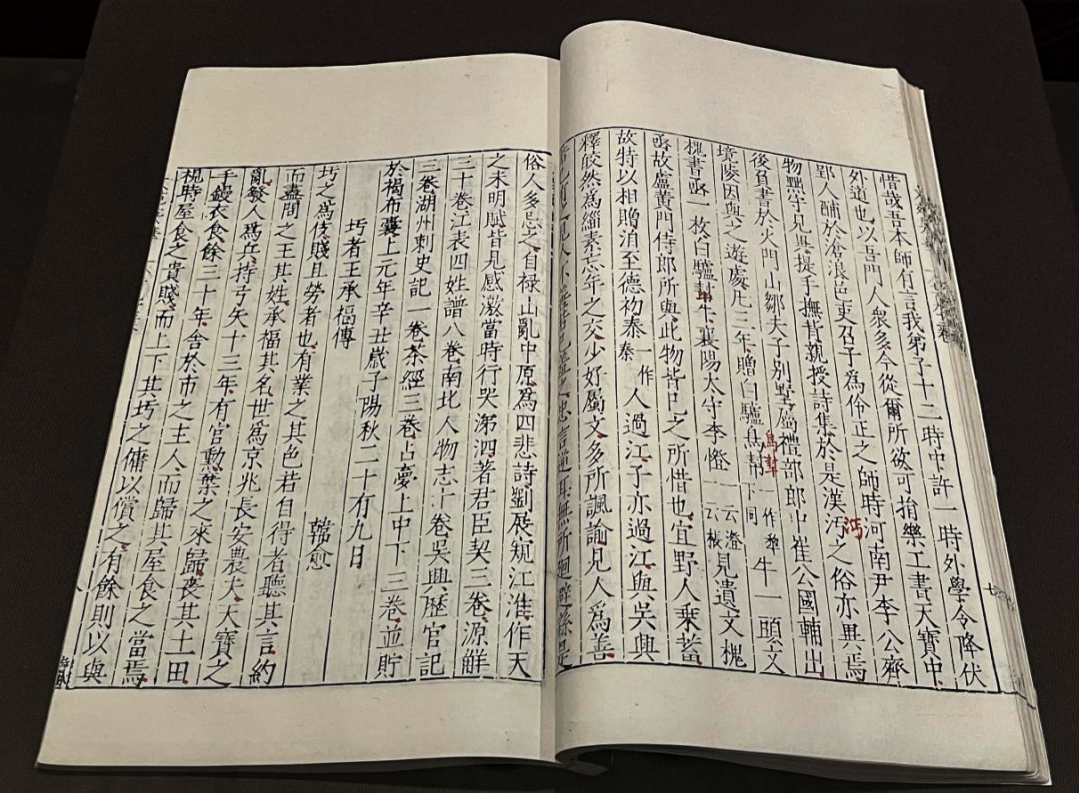 惜哉吾本師有言我弟子十二時中許一時外學令降伏
外道也以吾門人衆多今從爾所欲可捐樂工書天寶中
郢人酺於滄浪邑吏召子爲伶正之師時河南尹李公齊
物黜守見異提手撫背親授詩集於是漢沔之俗亦異焉
後負書於火門山鄒夫子別墅屬禮部郎中崔公國輔出
境陵因與之遊處凡三年贈白驢烏幇一作犎下同牛一頭文
槐書函一枚白驢幇牛襄陽太守李憕一云澄一云棖見遺文槐
函故盧黃門侍郎所與此物皆己之所惜也宜野人乘蓄
故特以相贈洎至德初泰一作秦人過江子亦過江與吳興
釋皎然爲緇素忘年之交少好屬文多所諷諭見人爲善
忠言逆耳無所迴避繇是
俗人多忌之自禄山亂中原爲四悲詩劉展窺江淮作天
之未明賦皆見感激當時行哭涕泗著君臣契三卷源觧
三十卷江表四姓譜八卷南北人物志十卷吳興歷官記
三卷湖州刺史記一卷茶經三卷占夢上中下三卷並貯
於褐布囊上元年辛丑歲子陽秋二十有九日
圬者王承福傳
韓愈
圬之爲伎賤且勞者也有業之其色若自得者聽其言約
而盡問之王其姓承福其名世爲京兆長安農夫天寶之
亂發人爲兵持弓矢十三年有官勳棄之來歸喪其土田
手鏝衣食餘三十年舍於市之主人而歸其屋食之當焉
視時屋食之貴賤而上下其圬之傭以償之有餘則以與